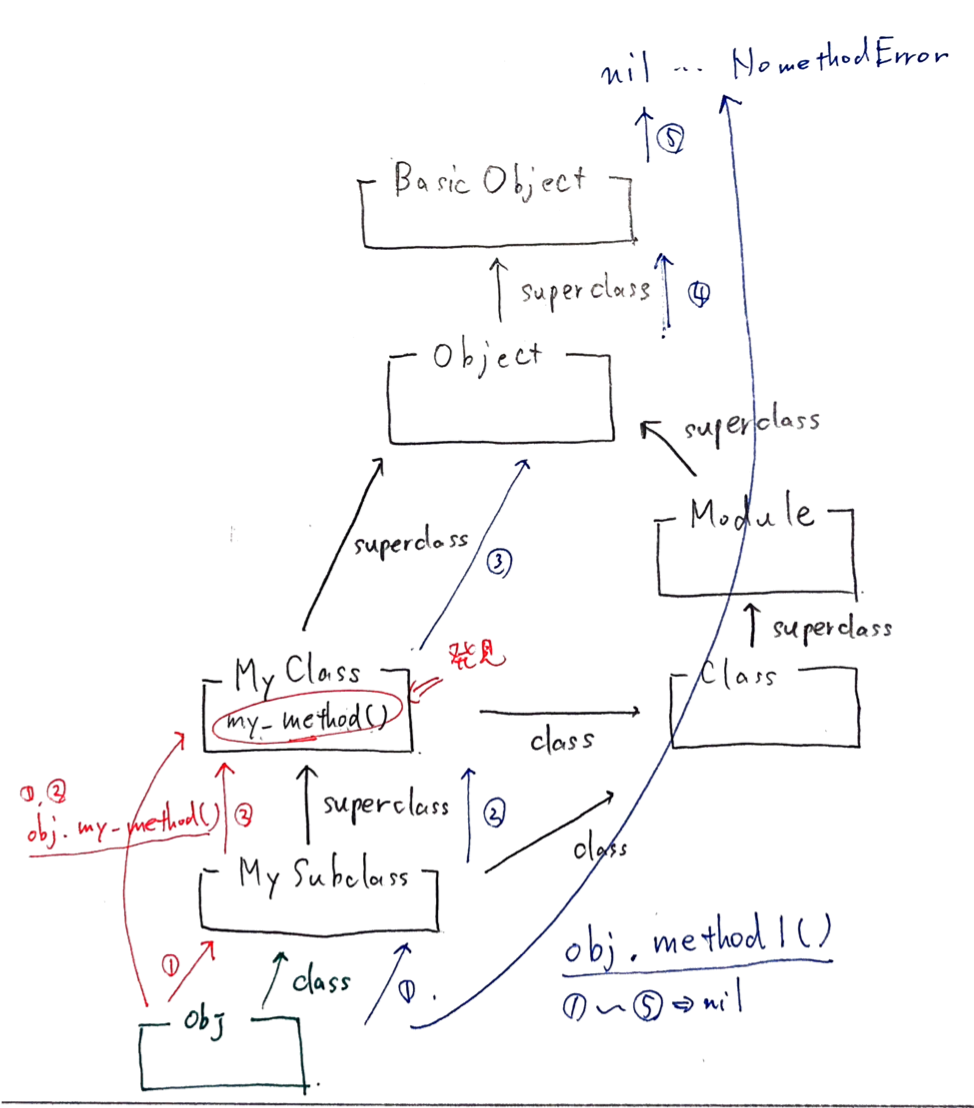 nil ... NomethodError
⑤
Basic Object
superclass
④
Object
superclass
Module
superclass
③
superclass
発見
My Class
my_method()
Class
class
①,②
obj.my_method()
②
superclass
②
class
My Subclass
obj.method1()
①
class
①
①〜⑤⇒nil
obj